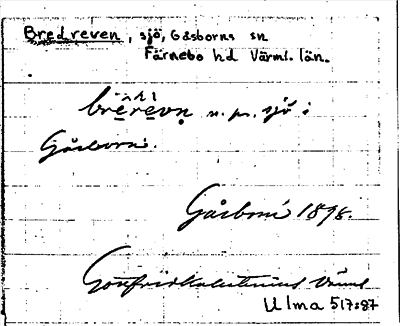 Bredreven, sjö, Gåsborns sn
Färnebo hd Värml. län.
brērevn n. pr. sjö i
Gåsborn.
Gåsborn 1898.
Gottfrid Kallstenius
Ulma 517:87